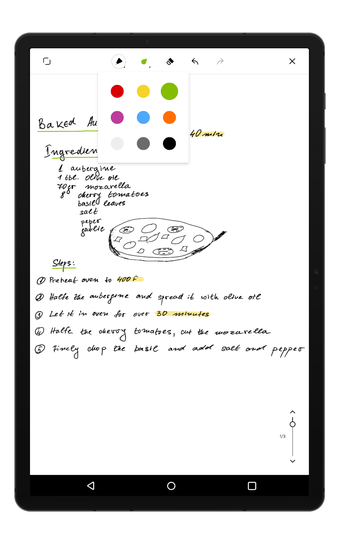 Baked Au
40 min
Ingredien
1 aubergine
1 tbl olive oil
70gr mozarella
8 cherry tomatoes
basil leaves
salt
peper
garlic
Steps:
① Preheat oven to 400F
② Halfe the aubergine and spread it with olive oil
③ Let it in oven for over 30 minutes
④ Halfe the cherry tomatoes, cut the mozarella
⑤ Finely chop the basil and add salt and pepper
1/3